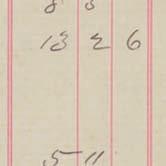 8 5
13 2 6
5 11